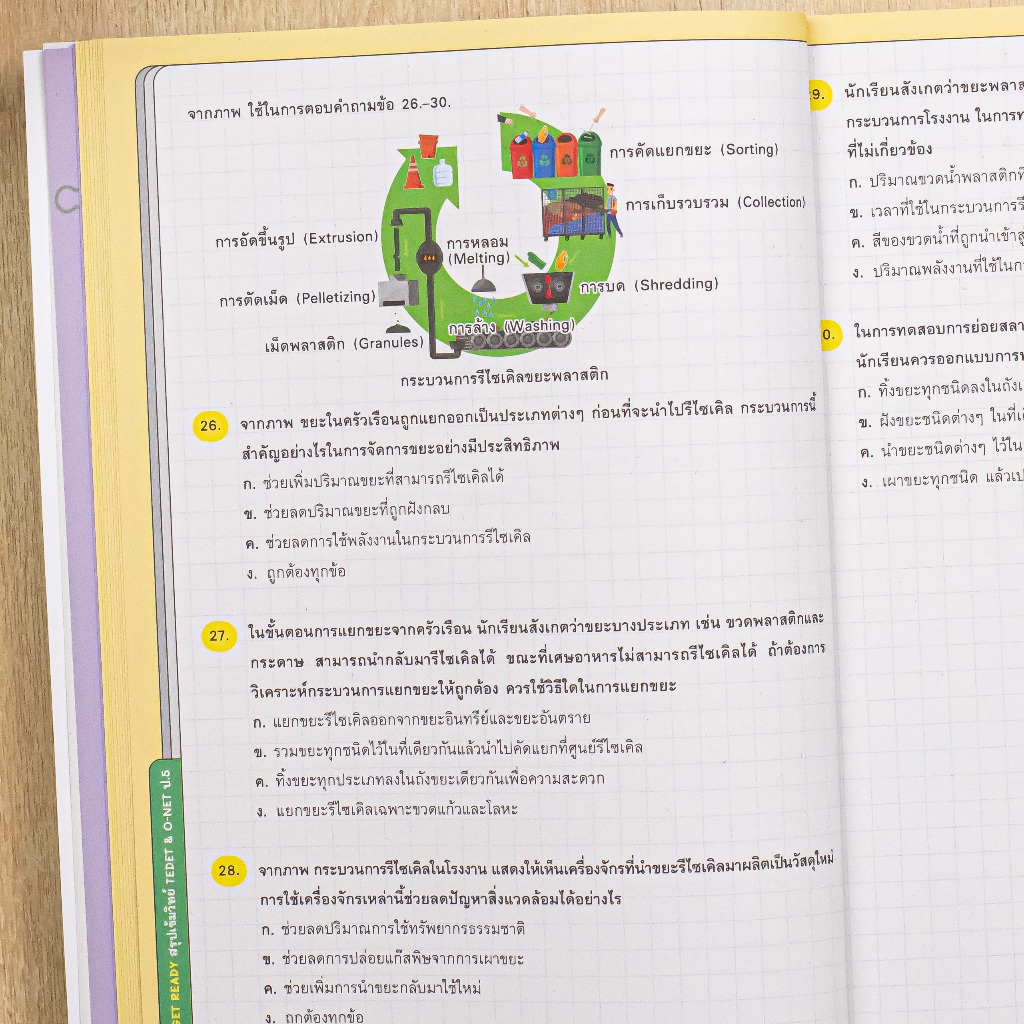 จากภาพ ใช้ในการตอบคำถามข้อ 26.-30.
การคัดแยกขยะ (Sorting)
การเก็บรวบรวม (Collection)
การอัดขึ้นรูป (Extrusion)
การหลอม
(Melting)
การบด (Shredding)
การตัดเม็ด (Pelletizing)
การล้าง (Washing)
เม็ดพลาสติก (Granules)
กระบวนการรีไซเคิลขยะพลาสติก
26. จากภาพ ขยะในครัวเรือนถูกแยกออกเป็นประเภทต่างๆ ก่อนที่จะนำไปรีไซเคิล กระบวนการนี้
สำคัญอย่างไรในการจัดการขยะอย่างมีประสิทธิภาพ
ก. ช่วยเพิ่มปริมาณขยะที่สามารถรีไซเคิลได้
ข. ช่วยลดปริมาณขยะที่ถูกฝังกลบ
ค. ช่วยลดการใช้พลังงานในกระบวนการรีไซเคิล
ง. ถูกต้องทุกข้อ
27. ในขั้นตอนการแยกขยะจากครัวเรือน นักเรียนสังเกตว่าขยะบางประเภท เช่น ขวดพลาสติกและ
กระดาษ สามารถนำกลับมารีไซเคิลได้ ขณะที่เศษอาหารไม่สามารถรีไซเคิลได้ ถ้าต้องการ
วิเคราะห์กระบวนการแยกขยะให้ถูกต้อง ควรใช้วิธีใดในการแยกขยะ
ก. แยกขยะรีไซเคิลออกจากขยะอินทรีย์และขยะอันตราย
ข. รวมขยะทุกชนิดไว้ในที่เดียวกันแล้วนำไปคัดแยกที่ศูนย์รีไซเคิล
ค. ทิ้งขยะทุกประเภทลงในถังขยะเดียวกันเพื่อความสะดวก
ง. แยกขยะรีไซเคิลเฉพาะขวดแก้วและโลหะ
28. จากภาพ กระบวนการรีไซเคิลในโรงงาน แสดงให้เห็นเครื่องจักรที่นำขยะรีไซเคิลมาผลิตเป็นวัสดุใหม่
การใช้เครื่องจักรเหล่านี้ช่วยลดปัญหาสิ่งแวดล้อมได้อย่างไร
ก. ช่วยลดปริมาณการใช้ทรัพยากรธรรมชาติ
ข. ช่วยลดการปล่อยแก๊สพิษจากการเผาขยะ
ค. ช่วยเพิ่มการนำขยะกลับมาใช้ใหม่
ง. ถูกต้องทุกข้อ
GET READY สรุปเข้มวิทย์ TEDET & O-NET ป.5
9. นักเรียนสังเกตว่าขยะพลาส
กระบวนการโรงงาน ในการ
ที่ไม่เกี่ยวข้อง
ก. ปริมาณขวดน้ำพลาสติกที่
ข. เวลาที่ใช้ในกระบวนการรี
ค. สีของขวดน้ำที่ถูกนำเข้าสู่
ง. ปริมาณพลังงานที่ใช้ใน
0. ในการทดสอบการย่อยสลา
นักเรียนควรออกแบบการ
ก. ทิ้งขยะทุกชนิดลงในถัง
ข. ฝังขยะชนิดต่างๆ ในที่
ค. นำขยะชนิดต่างๆ ไว้ใน
ง. เผาขยะทุกชนิด แล้ว